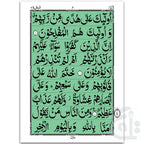 أُولَٰئِكَ عَلَىٰ هُدًى مِّن رَّبِّهِمْ
وَأُولَٰئِكَ هُمُ الْمُفْلِحُونَ
إِنَّ الَّذِينَ كَفَرُوا سَوَاءٌ عَلَيْهِمْ
أَأَنذَرْتَهُمْ أَمْ لَمْ تُنذِرْهُمْ لَا
يُؤْمِنُونَ خَتَمَ اللَّهُ عَلَىٰ
قُلُوبِهِمْ وَعَلَىٰ سَمْعِهِمْ وَعَلَىٰ
أَبْصَارِهِمْ غِشَاوَةٌ وَلَهُمْ عَذَابٌ
عَظِيمٌ وَمِنَ النَّاسِ مَن يَقُولُ
آمَنَّا بِاللَّهِ وَبِالْيَوْمِ الْآخِرِ